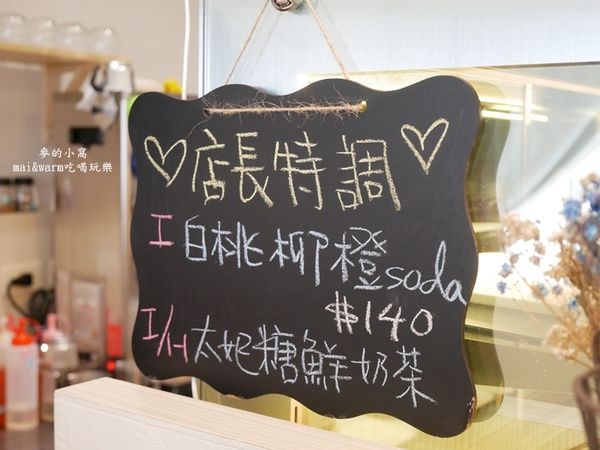 麥的小窩
mai&warm吃喝玩樂
♡店長特調♡
I 白桃柳橙soda
$140
I/H 太妃糖鮮奶茶